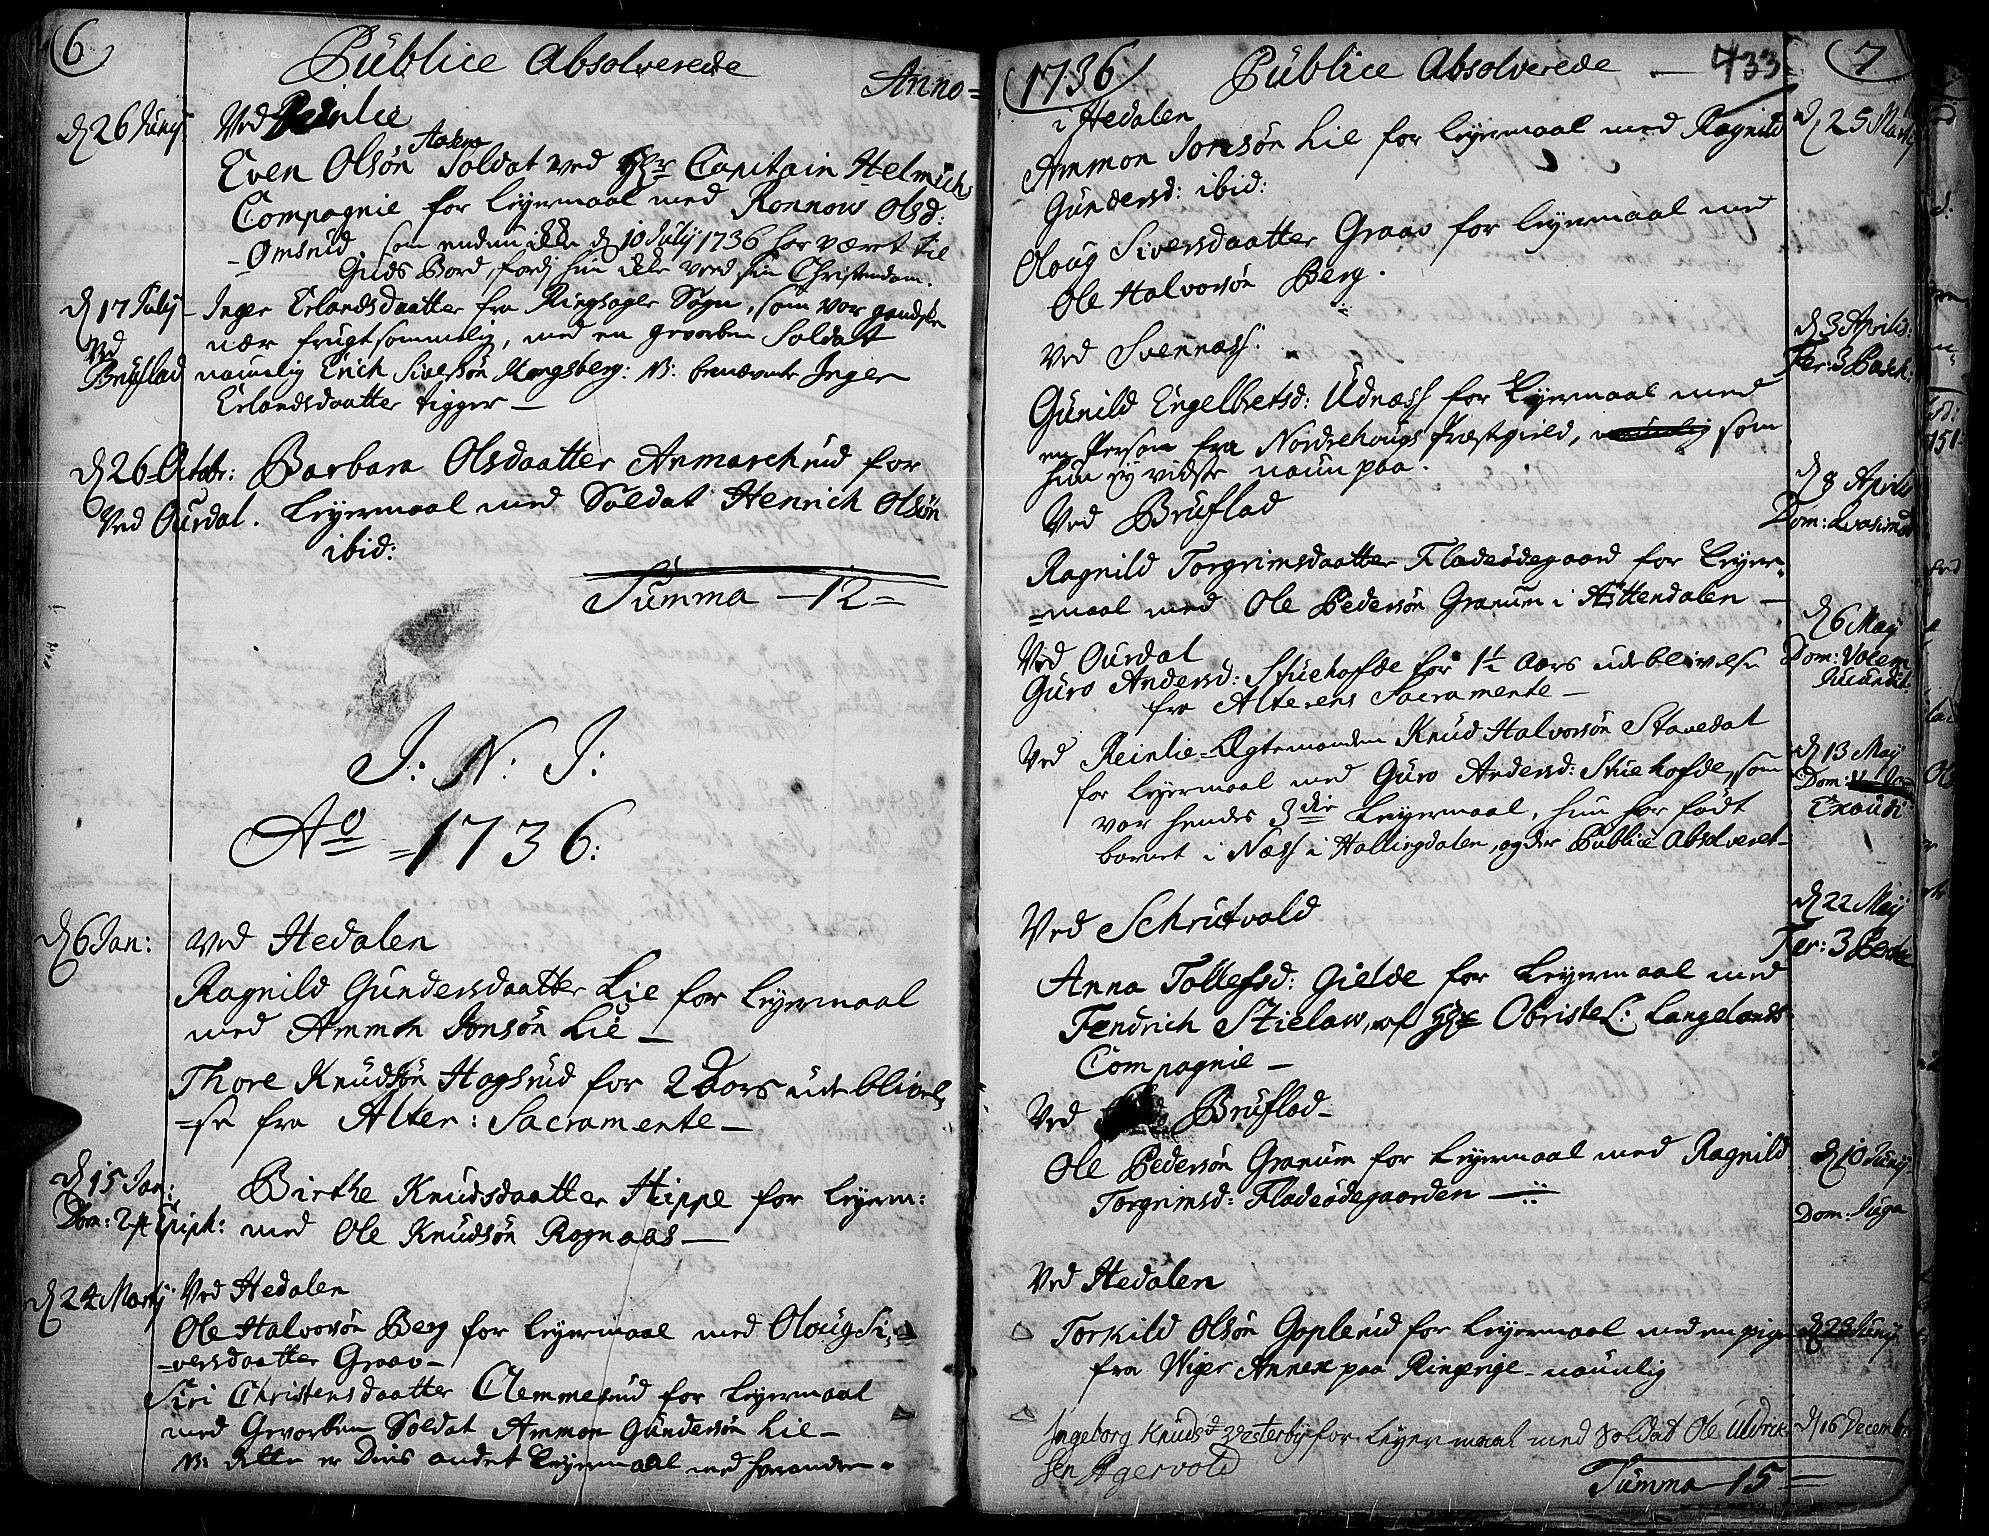 6
Publice Absolverede
Anno
d 26 Junij.
Ved Reinlie
Even Olsøn Soldat ved Hr Capitain Helmichs
Compagnie for Leyermaal med Ronnow Olsd:
Omsrud, som endnu ikke d 10 July 1736 har vært til
Guds Bord, fordj hun ikke veed sin Christendom.
d 17 July
Ved
Bruflad
Inger Erlandsdaatter fra Ringsager Sogn, som var gandske
nær frugtsommelig, med en gevorben Soldat
naunlig Erich Siversøn Kongsberg: N: benævnte Inger
Erlandsdaatter tigger
d 26 Octobr:
Ved Ourdal.
Barbara Olsdaatter Anmarchrud for
Leyermaal med Soldat Henrich Olsøn
ibid:
Summa 12
J: N: J:
Ao 1736:
d 6 Jan:
Ved Hedalen
Ragnild Gundersdaatter Lie for Leyermaal
med Ammon Jonsøn Lie
Thore Knudsøn Hogsrud for 2 Aars udeblivel
=se fra Alter: Sacramente
d 15 Jan:
Dom: 2 p Epiph:
Birthe Knudsdaatter Hippe for Leyerm:
med Ole Knudsøn Rognaas
d 24 Martij
Ved Hedalen
Ole Halvorsøn Berg for Leyermaal med Oloug Si,
=versdaatter Graav
Siri Christensdaatter Clemmesrud for Leyermaal
med Gevorben Soldat Ammon Gundersøn Lie
N: dette er Dens andet Leyermaal med hverandre.
1736
Publice Absolverede
433
7
i Hedalen
d 25 Martij
Ammon Jonsøn Lie for Leyermaal med Ragnild
Gundersd: ibid:
Oloug Siversdaatter Graav for Leyermaal med
Ole Halvorsøn Berg.
d 3 Aprilis:
Fer: 3 Pasch:
Ved Svennæss.
Gunild Engelbretsd: Udnæss for Leyermaal med
en Person fra Nordrehougs Præstegield, som
hun ej vidste naun paa.
d 8 Aprilis
Dom: Qvasimod
Ved Bruflad
Ragnild Torgrimsdaatter Fladeødegaard for Leyer=
=maal med Ole Pedersøn Granum i Attendalen
d 6 Maij
Dom: Vocem
Jucundit.
Ved Ourdal
Guro Andersd: Stuehofde for 1½ Aars udeblivelse
fra Alterens Sacramente
d 13 Maij
Dom:
Exaudi
Ved Reinlie Ægtemanden Knud Halvorsøn Stavedal
for Leyermaal med Guro Andersd: Stuehofde, som
var hendes 3die Leyermaal, hun har født
barnet i Næss i Hallingdalen, og der Publice Absolveret
d 22 Maij
Fer: 3 Pentec
Ved Schrutvold
Anna Tollefsd: Gielde for Leyermaal med
Fendrich Stielaw, af Hr Obriste L: Langelands
Compagnie
Ved Bruflad
d 10 Junij
Dom: 2 Juga
Ole Pedersøn Granum for Leyermaal med Ragnild
Torgrimsd: Fladeødegaarden
Ved Hedalen
Torkild Olsøn Goplerud for Leyermaal med en pige
d 28 Junij
fra Wiger Annex paa Ringerige naunlig
Ingeborg Knudsd Westerby for Leyermaal med Soldat Ole Uldrik
d 16 Decembr
sen Agervold
Summa 15